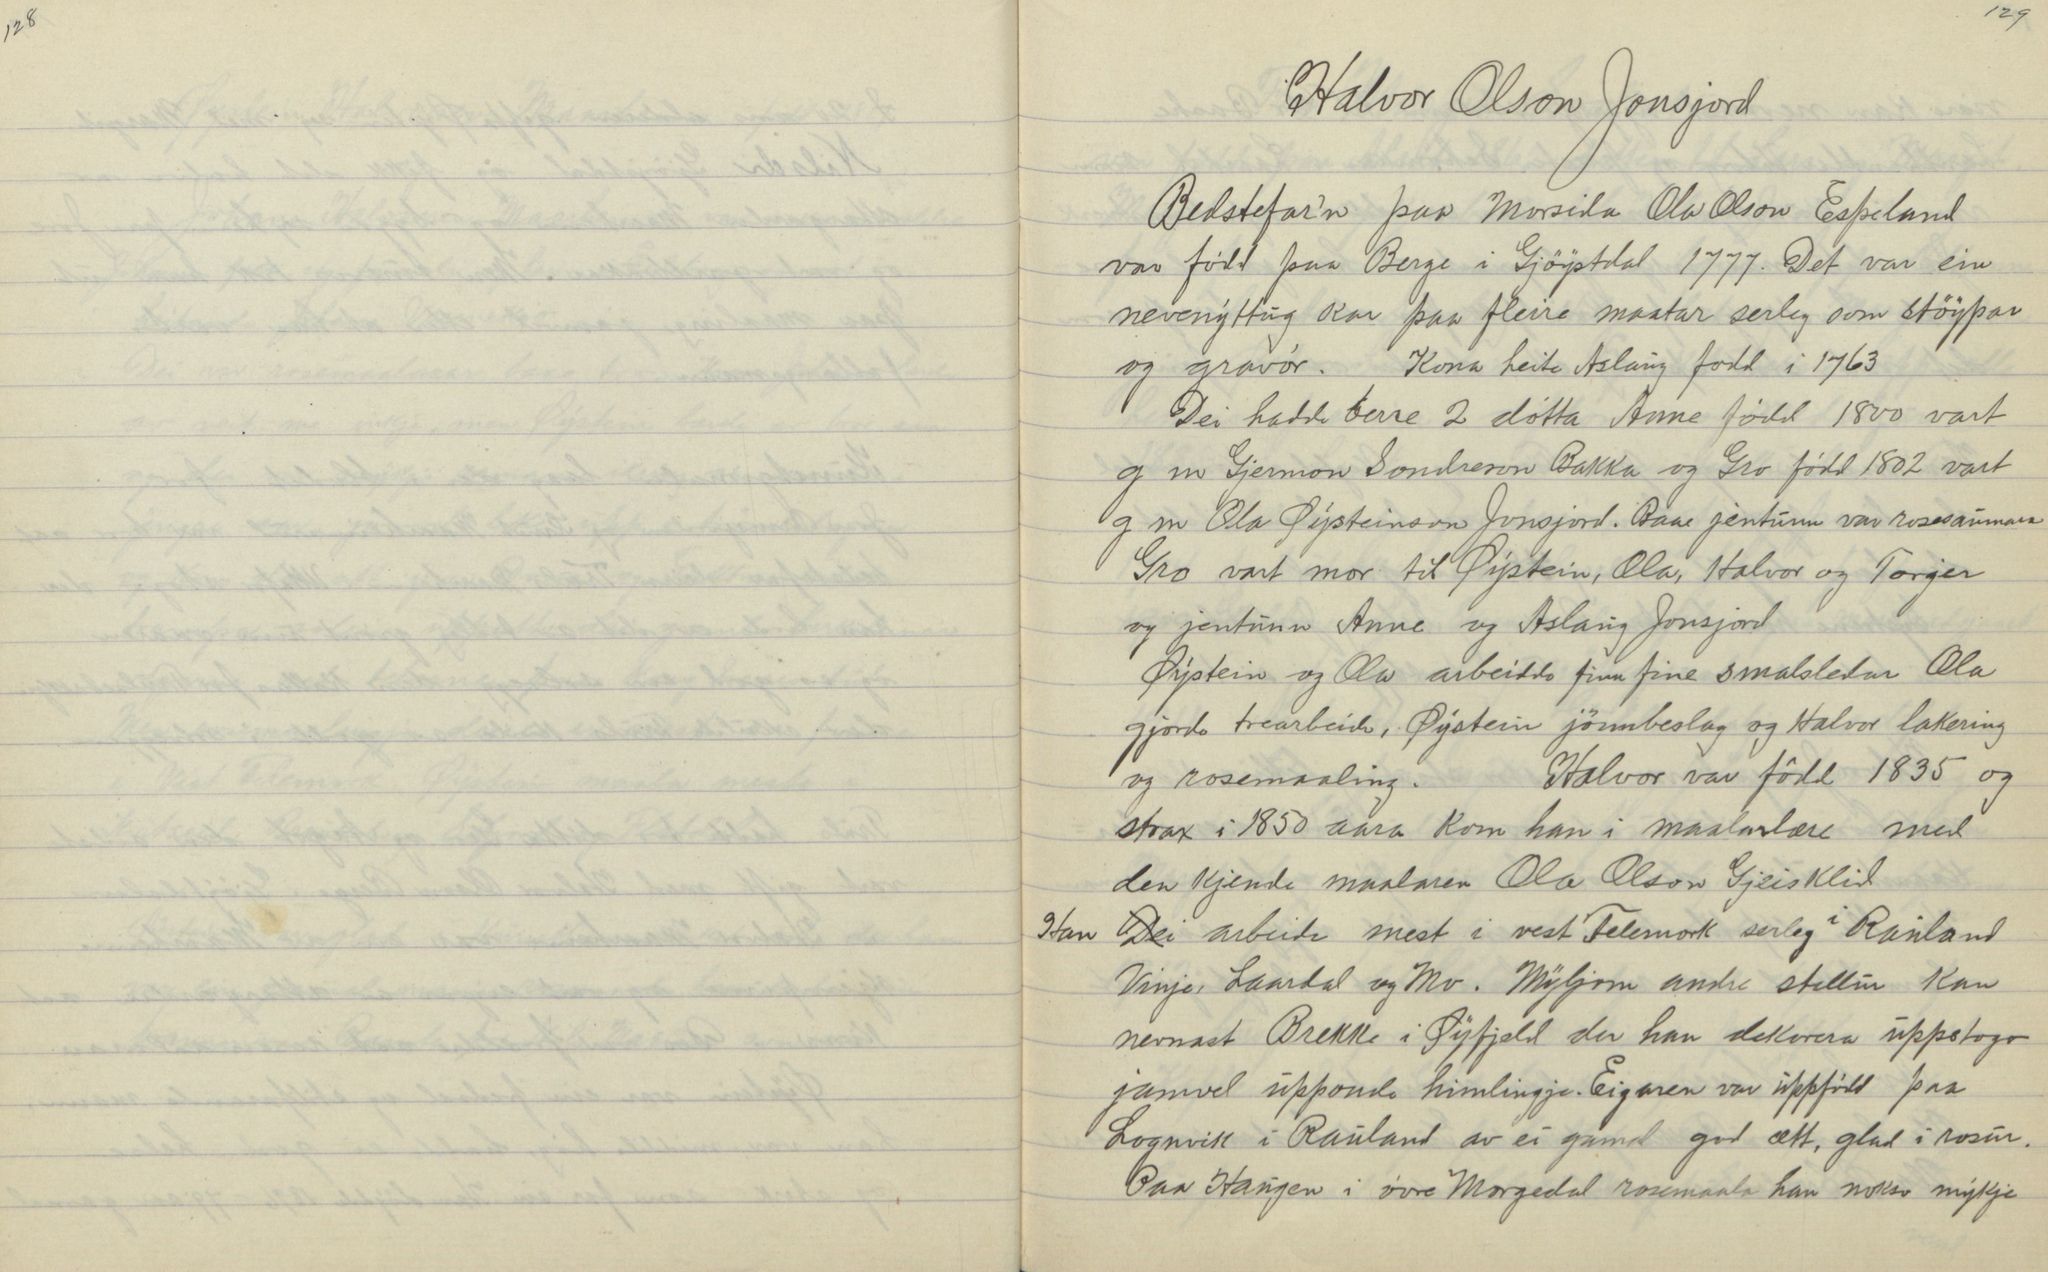 128
129
Halvor Olson Jonsjord
Bedstefar'n paa Morsida Ola Olson Espeland
var född paa Berge i Gjöystdal 1777. Det var ein
nevenyttug kar paa fleire maatar serleg som stöypar
og gravör. Kona heite Aslaug född i 1763
Dei hadde berre 2 dótta Anne född 1800 vart
g m Gjermon Sondreson Bakka og Gro född 1802 vart
g m Ola Øysteinson Jonsjord. Baae jentunn var rosesaumara
Gro vart mor til Øystein, Ola, Halvor og Torger
og jentunn Anne og Aslaug Jonsjord
Øystein og Ola arbeidde finn fine smalsledar Ola
gjorde trearbeide, Øystein jönnbeslag og Halvor lakering
og rosemaaling. Halvor var född 1835 og
strax i 1850 aara kom han i maalarlære med
den kjende maalaren Ola Olson Gjeisklid
Han Dei arbeide mest i vest Telemork serleg i Rauland
Vinje, Laardal og Mo. Myljom andre stellur kan
nevnast Brekke i Øyfjeld der han dekorera uppstogo
jamvel upponde himlingje. Eigaren var uppfödd paa
Lognvik i Rauland av ei gamal god ætt, glad i rosur.
Paa Haugen i övre Morgedal rosemaala han nokso mykje